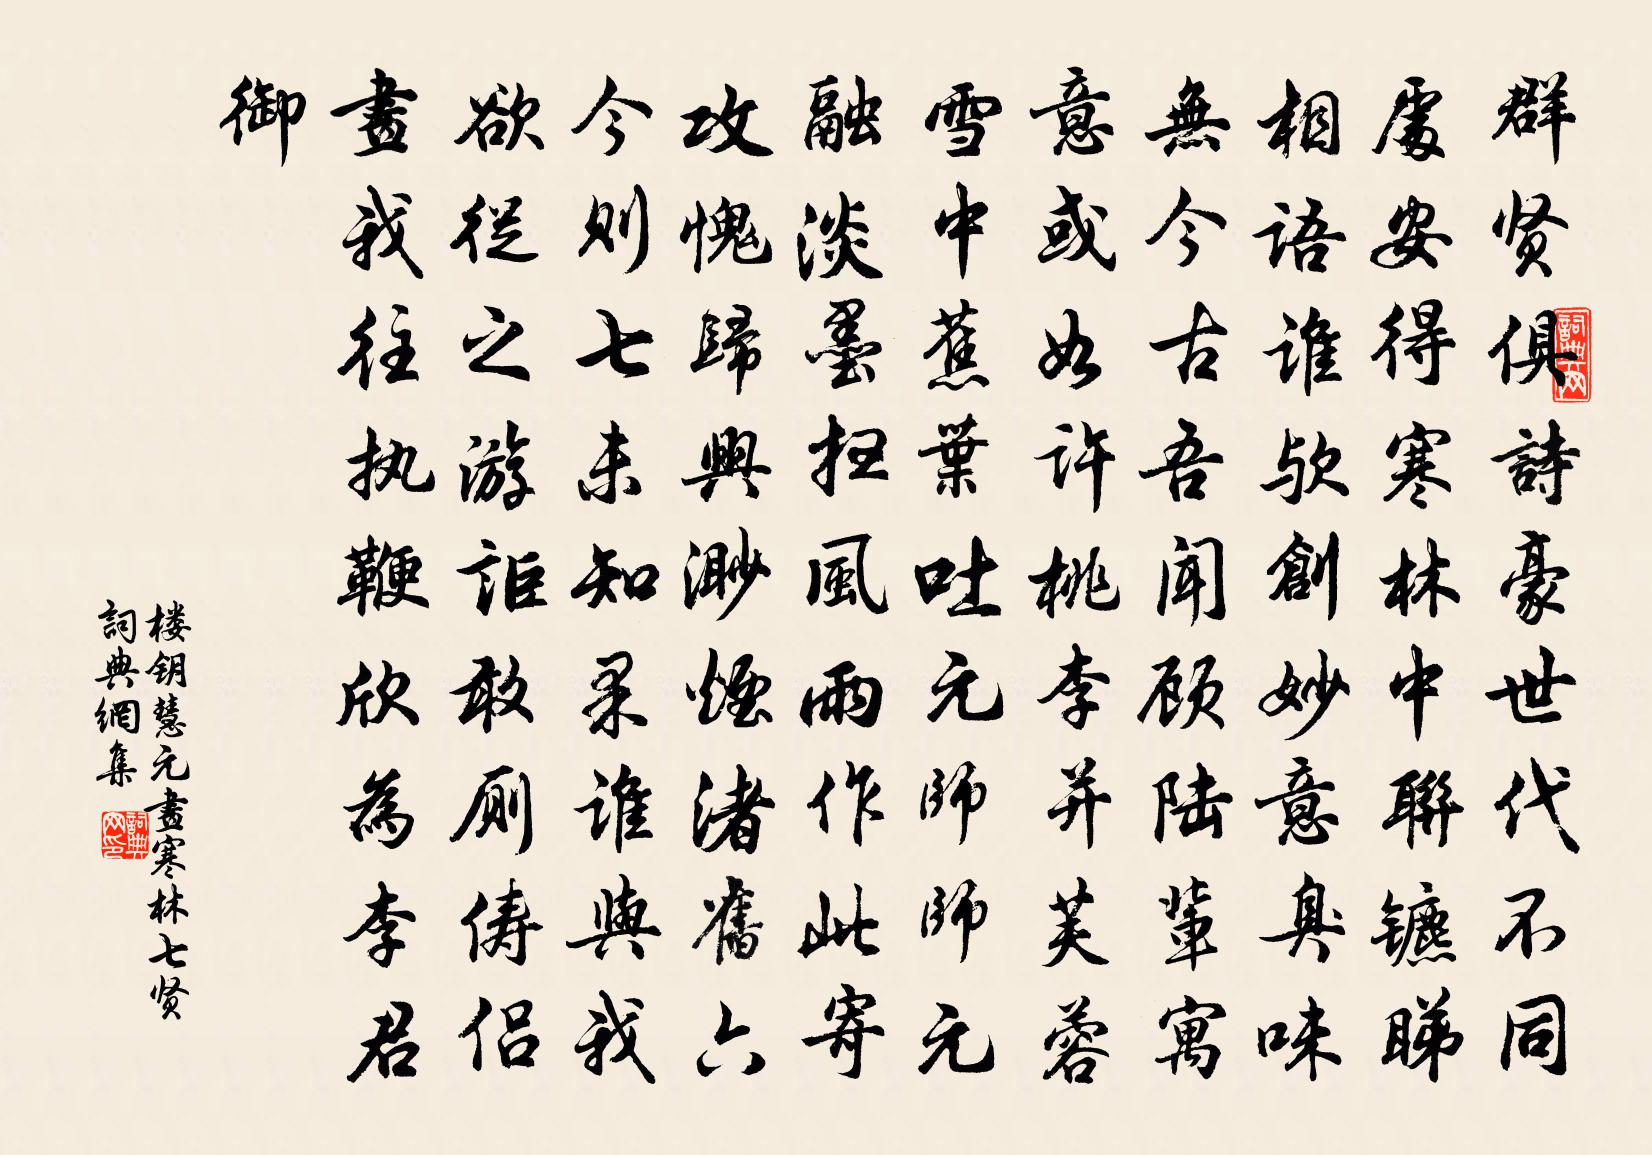 群贤俱詩豪世代不同
處安得寒林中聯镳睇
相語谁欤創妙意臭味
無今古吾闻顾陆辈寓
意或如许桃李并芙蓉
雪中蕉葉吐元師師元
融淡墨扫風雨作此寄
攻愧歸興渺煙渚舊六
今则七未知果谁與我
欲從之游詎敢厠俦侣
畫我往执鞭欣為李君
御
楼钥慧元畫寒林七贤
詞典網集